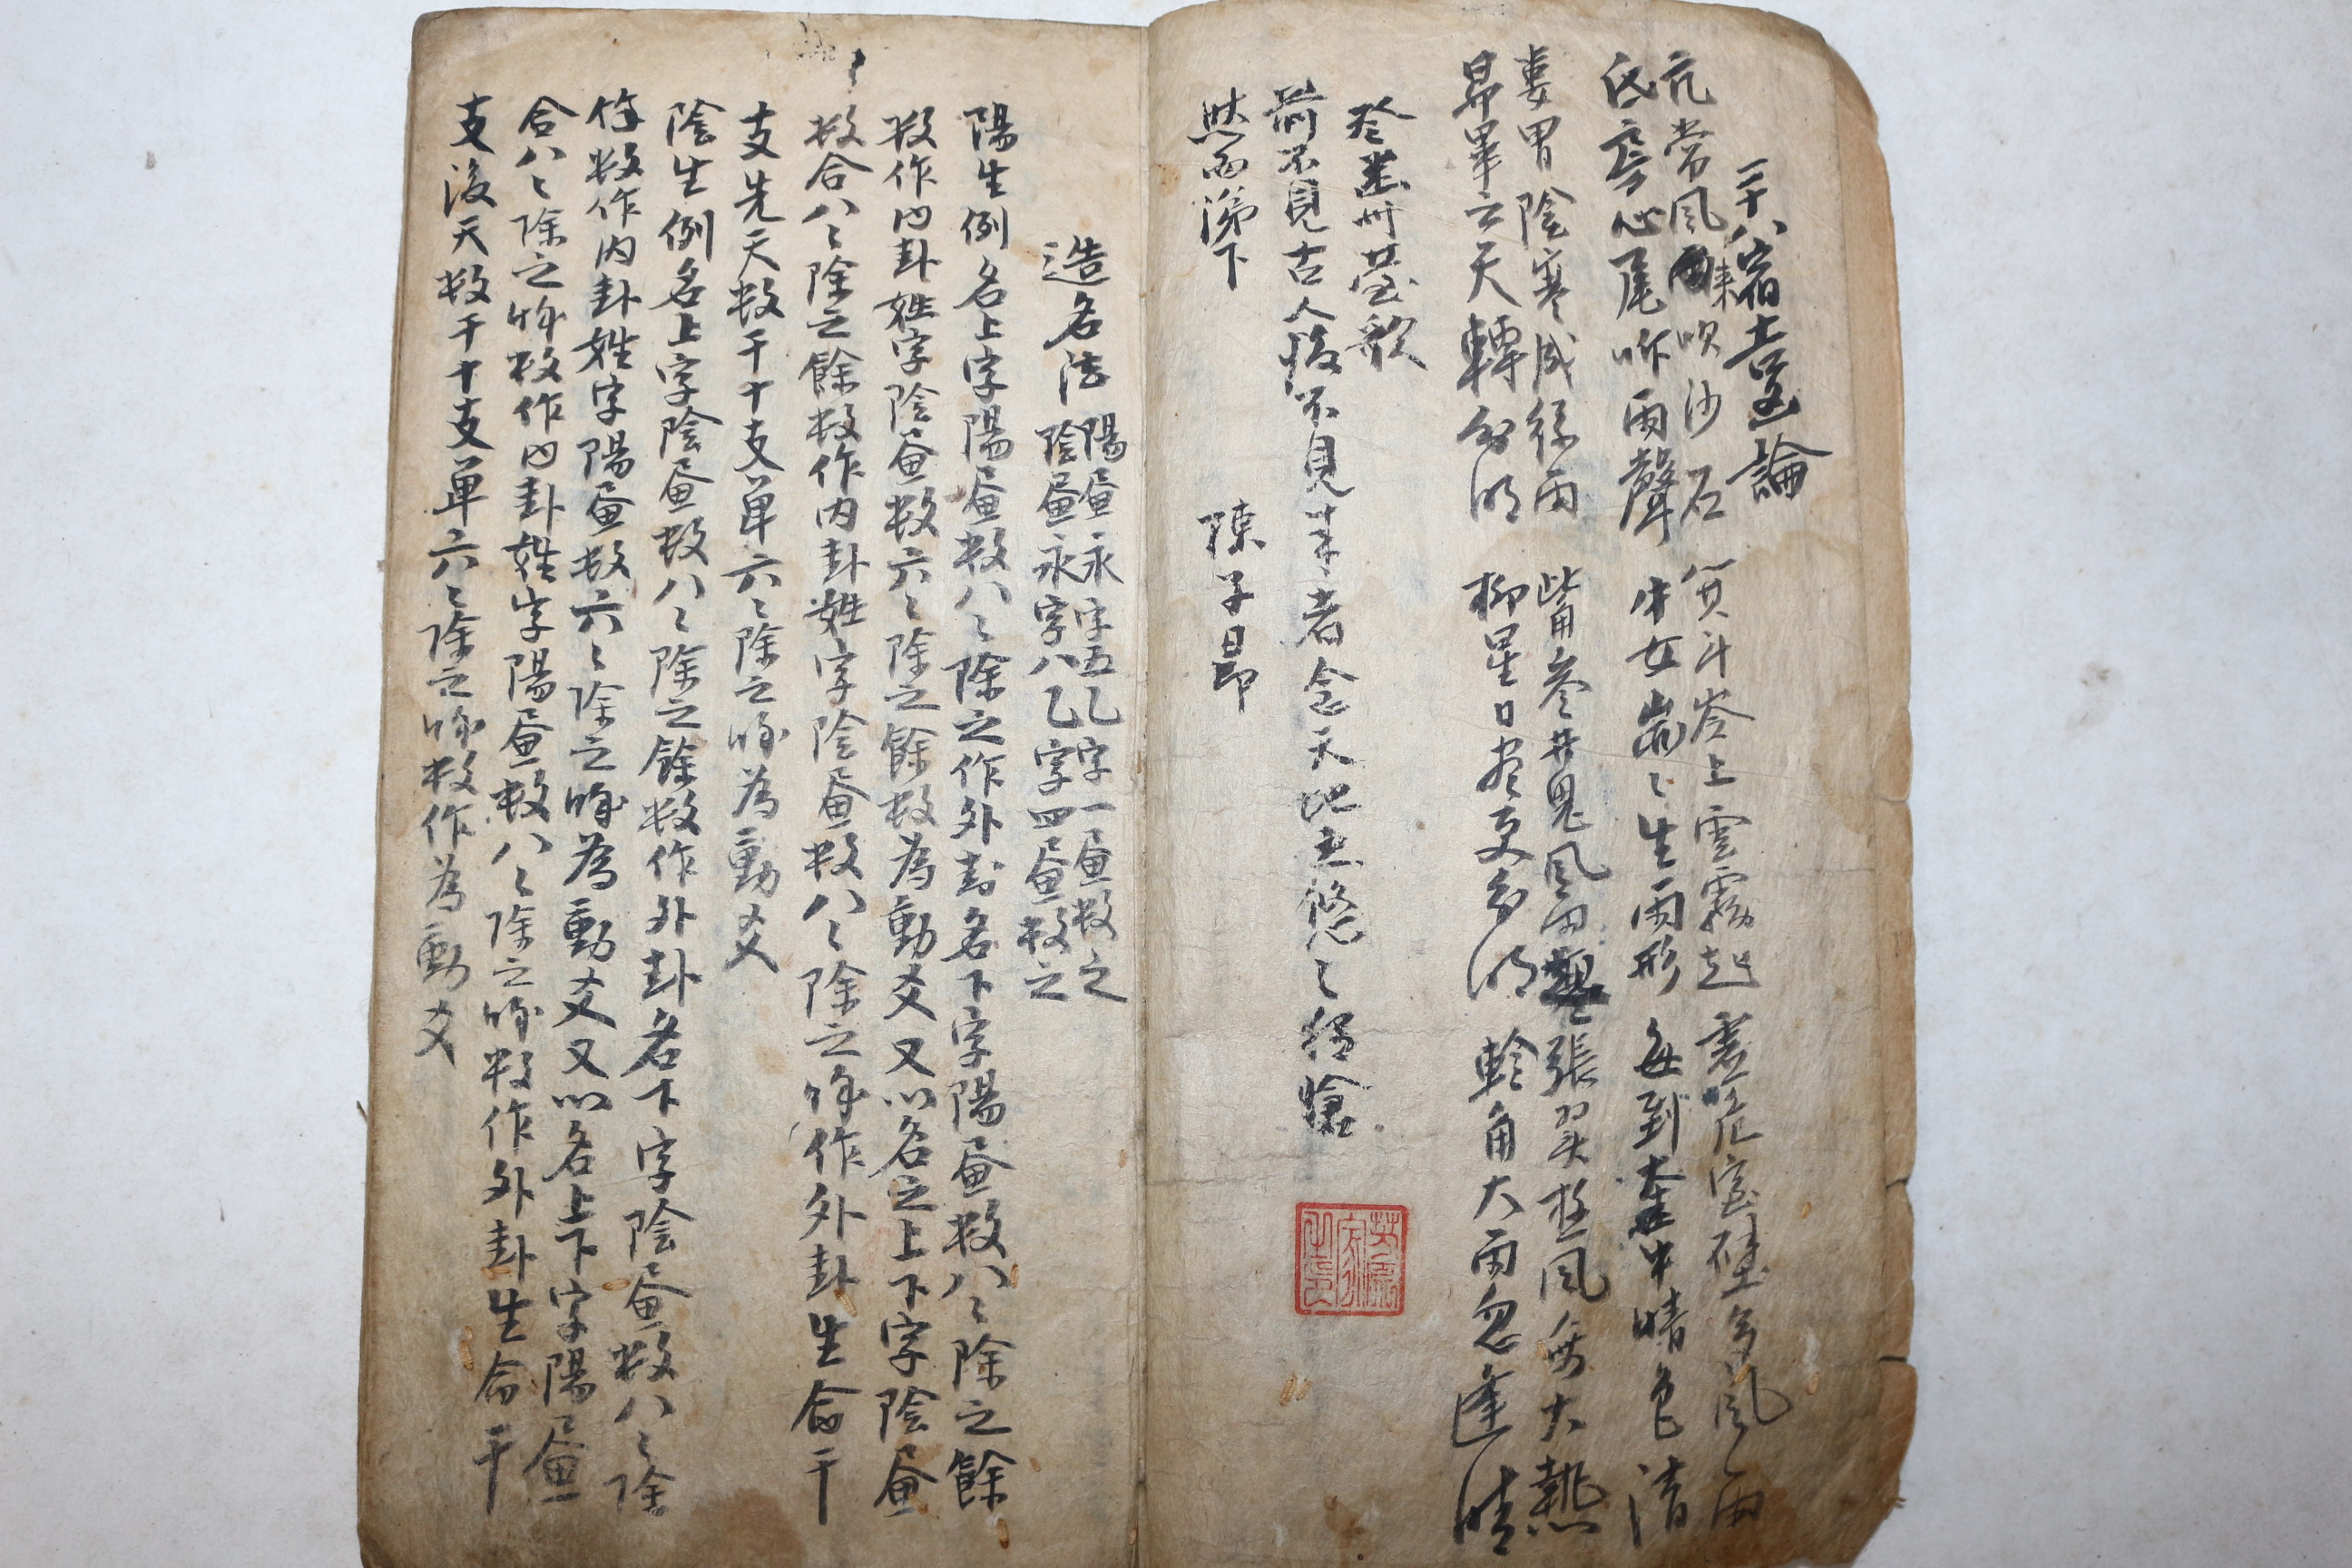 二十八宿吉凶論
亢常風雨來吹沙石 箕斗岑上雲霧起 虛危室壁多風雨
氐房心尾咋雨聲 牛女崩々生雨形 每到奎中晴色清
婁胃陰寒成後雨 觜參井鬼風雨 張翼極風無大熱
昴畢六天轉分明 柳星日盡更多明 軫角大雨忽逢晴
登幽州臺歌
前不見古人後不見來者念天地之悠々獨愴
然而涕下
陳子昂
造名法 陽畫永字五乙字一畫數之
陰畫永字八乙字四畫數之
陽生例名上字陽畫數八々除之作外卦名下字陽畫數八々除之餘
數作內卦姓字陰畫數六々除之餘數為動爻又以名之上下字陰畫
數合八々除之餘數作內卦姓字陰畫數八々除之餘作外卦生命干
支先天數干十支單六々除之餘為動爻
陰生例名上字陰畫數八々除之餘數作外卦名下字陰畫數八々除
餘數作內卦姓字陽畫數六々除之餘為動爻又以名上下字陽畫
合八々除之餘數作內卦姓字陽畫數八々除之餘數作外卦生命干
支後天數干十支單六々除之餘數作為動爻